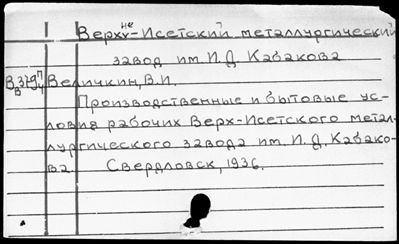 Верхне-Исетский металлургический
завод им И.Д. Кабакова
Величкин, В.И.
Производственные и бытовые ус-
ловия рабочих Верх-Исетского метал-
лургического завода им. И.Д. Кабако-
ва. Свердловск, 1936.